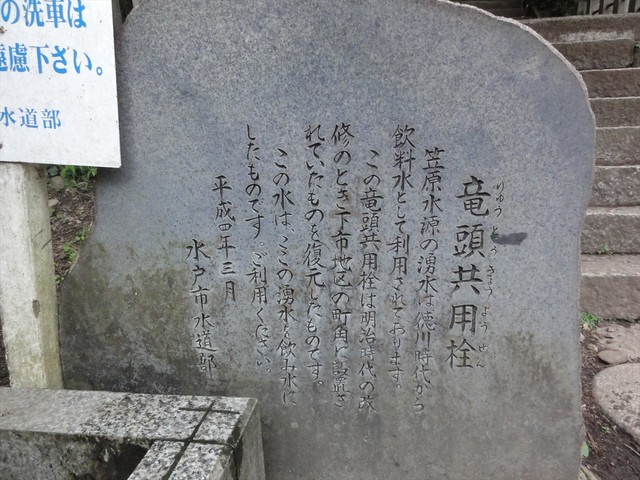 の洗車は
遠慮下さい。
水道部
竜頭共用栓
りゅう とう きょう よう せん
笠原水源の湧水は徳川時代から
飲料水として利用されております。
この竜頭共用栓は明治時代の改
修のとき下市地区の町角に設置さ
れていたものを復元したものです。
この水は、ここの湧水を飲み水に
したものです。ご利用ください。
平成四年三月
水戸市水道部